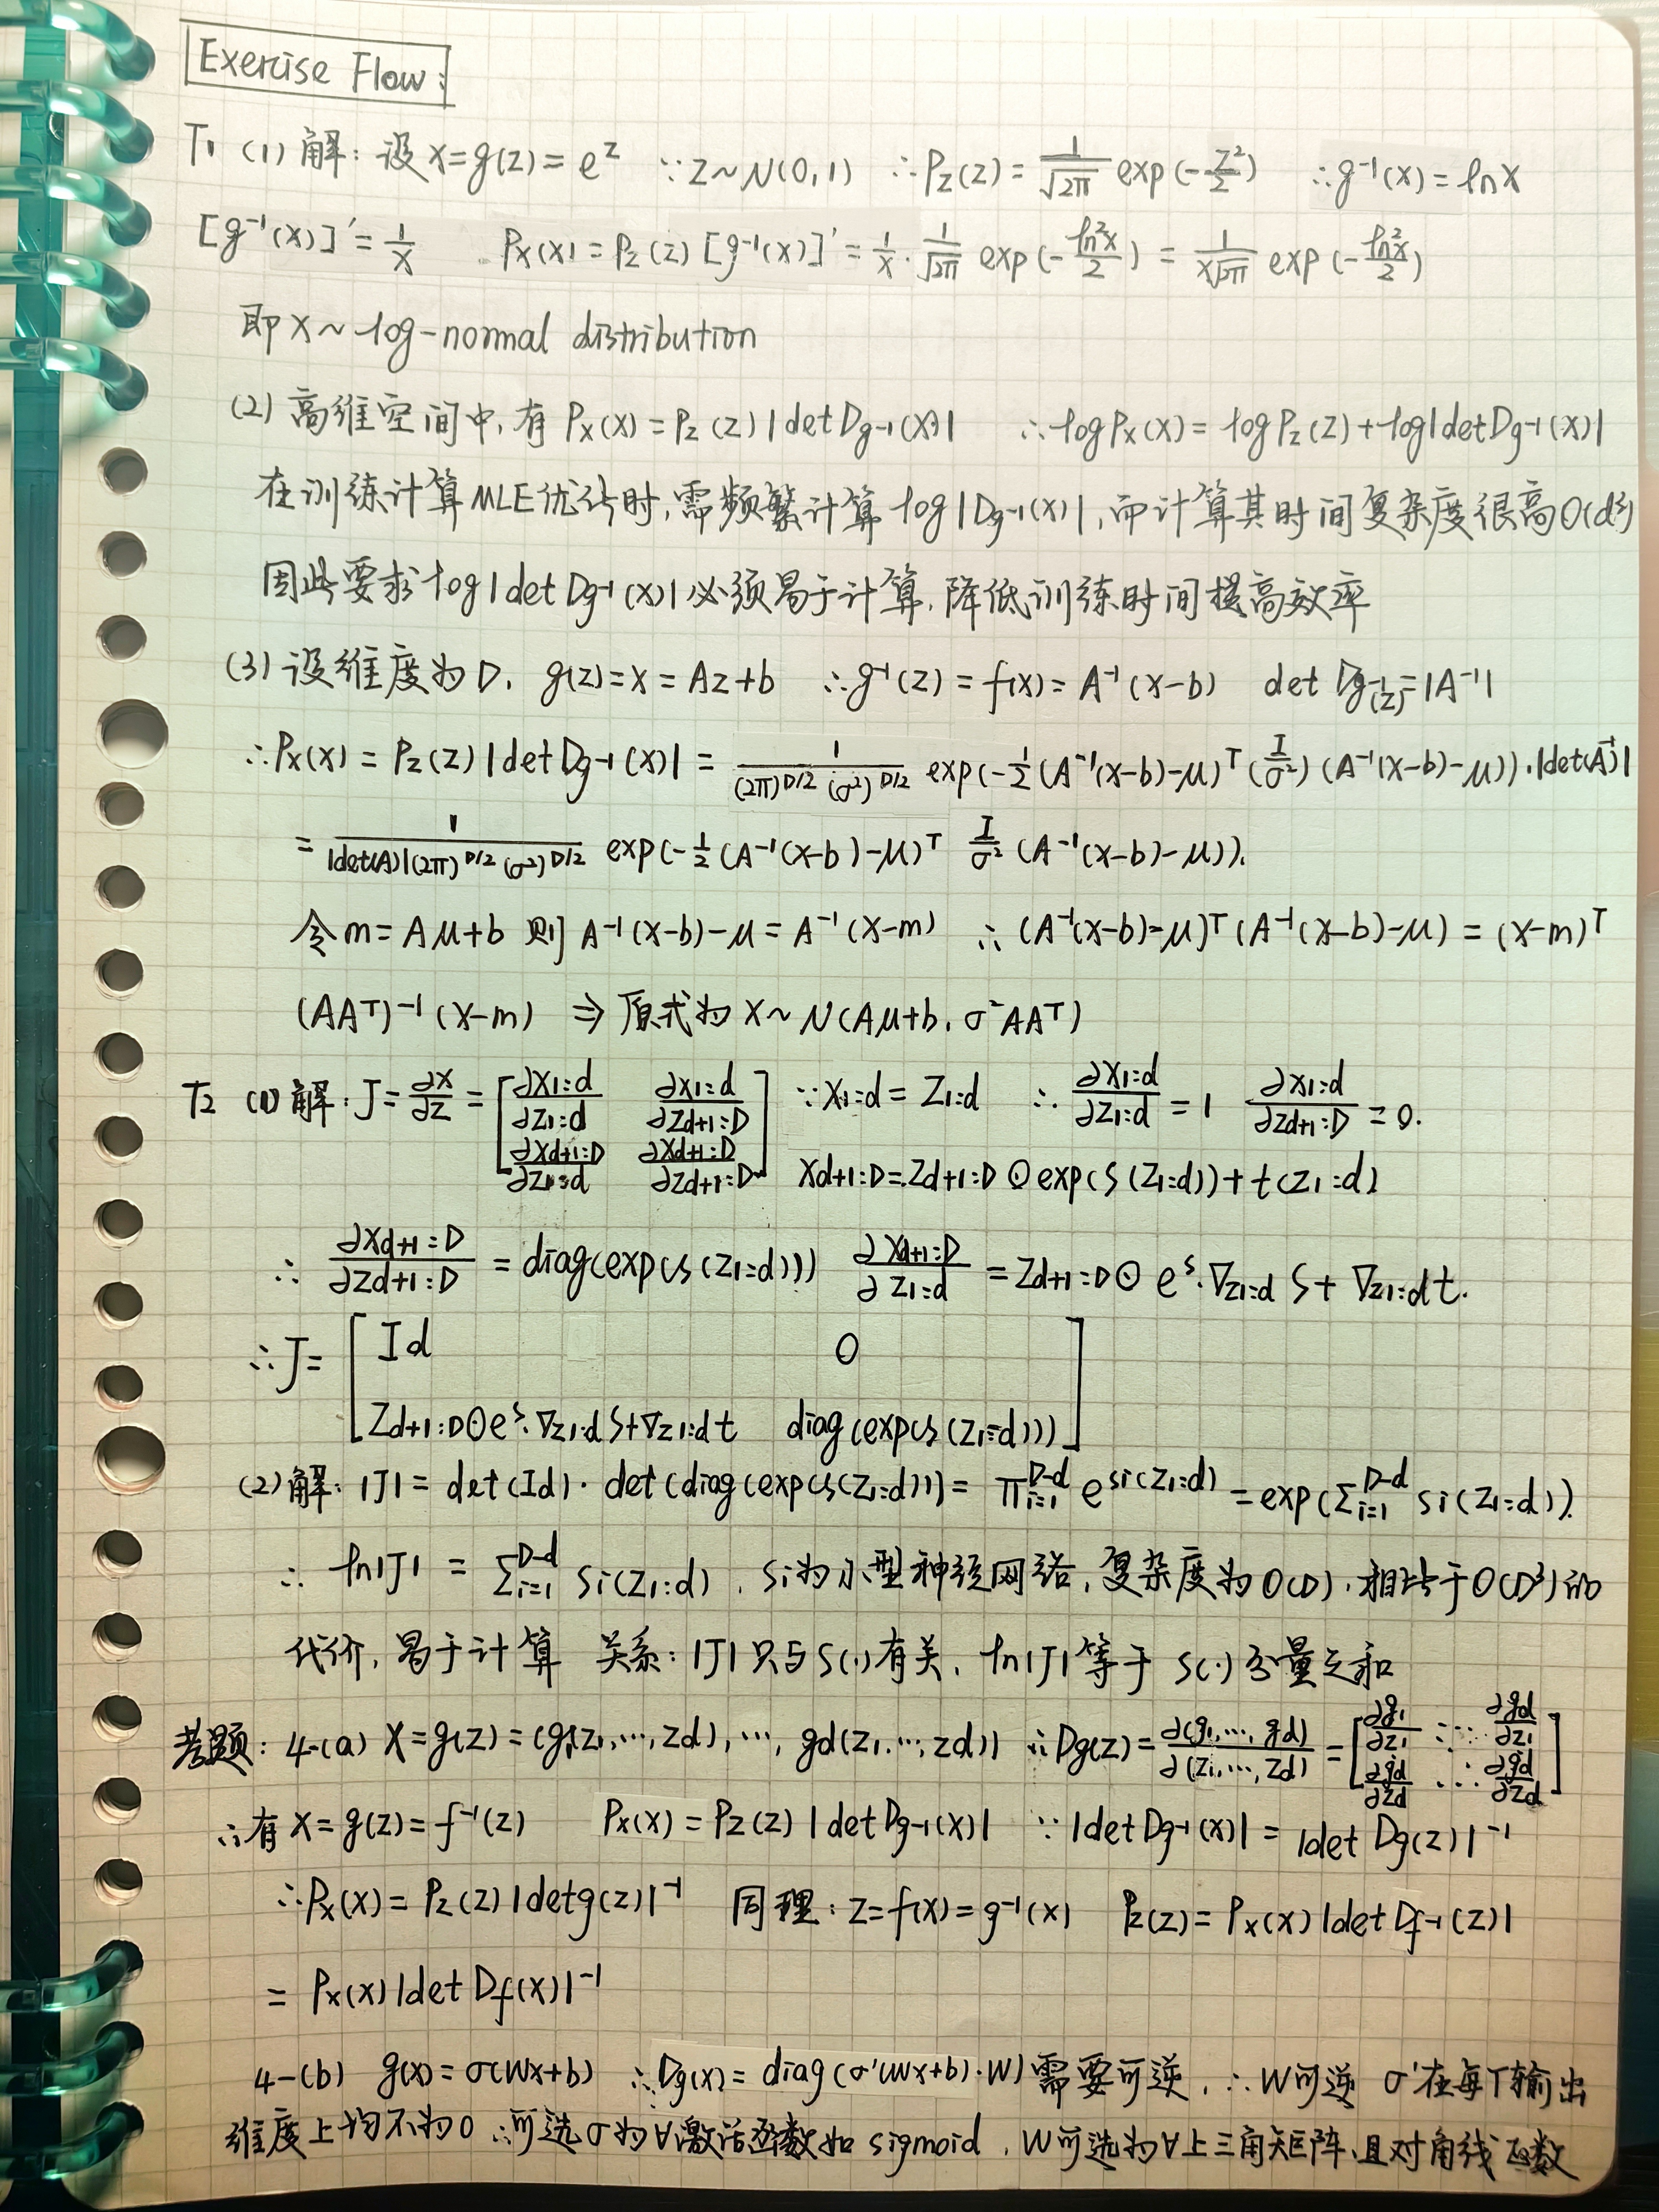 Exercise Flow:
T1 (1) 解: 设 x=g(z)=e^z ∵z~N(0,1) ∴P_Z(z)=\frac{1}{\sqrt{2π}} exp(-\frac{z²}{2}) ∴g⁻¹(x)=ln x
[g⁻¹(x)]'=\frac{1}{x} P_X(x)=P_Z(z)[g⁻¹(x)]'=\frac{1}{x}·\frac{1}{\sqrt{2π}} exp(-\frac{ln²x}{2}) = \frac{1}{x\sqrt{2π}} exp(-\frac{ln²x}{2})
即 x~log-normal distribution
(2) 高维空间中, 有 P_X(x)=P_Z(z)|det D_{g⁻¹}(x)| ∴log P_X(x)=log P_Z(z)+log|det D_{g⁻¹}(x)|
在训练计算MLE优计时, 需频繁计算 log|D_{g⁻¹}(x)|, 而计算其时间复杂度很高O(d³)
因此要求 log|det D_{g⁻¹}(x)|必须易于计算, 降低训练时间提高效率
(3) 设维度为D, g(z)=x=Az+b ∴g⁻¹(z)=f(x)=A⁻¹(x-b) det D_{g⁻¹}(z)=|A⁻¹|
∴P_X(x)=P_Z(z)|det D_{g⁻¹}(x)|=\frac{1}{(2π)^{D/2}(σ²)^{D/2}} exp(-\frac{1}{2}(A⁻¹(x-b)-μ)ᵀ(\frac{I}{σ²})(A⁻¹(x-b)-μ))·|det(A⁻¹)|
=\frac{1}{|det(A)|(2π)^{D/2}(σ²)^{D/2}} exp(-\frac{1}{2}(A⁻¹(x-b)-μ)ᵀ \frac{I}{σ²}(A⁻¹(x-b)-μ)).
令m=Aμ+b 则 A⁻¹(x-b)-μ=A⁻¹(x-m) ∴(A⁻¹(x-b)-μ)ᵀ(A⁻¹(x-b)-μ)=(x-m)ᵀ
(AAᵀ)⁻¹(x-m) ⇒ 原式为 x~N(Aμ+b, σ²AAᵀ)
T2 (1) 解: J=\frac{∂x}{∂z}=\begin{bmatrix}\frac{∂x1:d}{∂z1:d} & \frac{∂x1:d}{∂zd+1:D} \\ \frac{∂xd+1:D}{∂z1:d} & \frac{∂xd+1:D}{∂zd+1:D}\end{bmatrix} ∵x1:d=z1:d ∴\frac{∂x1:d}{∂z1:d}=1 \frac{∂x1:d}{∂zd+1:D}=0.
xd+1:D=zd+1:D⊙exp(s(z1:d))+t(z1:d)
∴\frac{∂xd+1:D}{∂zd+1:D}=diag(exp(s(z1:d))) \frac{∂xd+1:D}{∂z1:d}=zd+1:D⊙e^s·∇z1:d s+∇z1:d t.
∴J=\begin{bmatrix}Id & 0 \\ zd+1:D⊙e^s·∇z1:d s+∇z1:d t & diag(exp(s(z1:d)))\end{bmatrix}
(2) 解: |J|=det(Id)·det(diag(exp(s(z1:d)))=Π_{i=1}^{D-d} e^{si(z1:d)}=exp(Σ_{i=1}^{D-d} si(z1:d)).
∴ln|J|=Σ_{i=1}^{D-d} si(z1:d), si为小型神经网络, 复杂度为O(D), 相比于O(D³)的
代价, 易于计算 关系: |J|只与s(·)有关, ln|J|等于 s(·)分量之和
考题: 4-(a) X=g(z)=(g₁(z₁,…,zd),…, gd(z₁,…,zd)) ∴Dg(z)=\frac{∂(g₁,…,gd)}{∂(z₁,…,zd)}=\begin{bmatrix}\frac{∂g₁}{∂z₁} & ⋯ & \frac{∂gd}{∂z₁} \\ \frac{∂gd}{∂zd} & ⋯ & \frac{∂gd}{∂zd}\end{bmatrix}
∴有 X=g(z)=f⁻¹(z) P_X(x)=P_Z(z)|det D_{g⁻¹}(x)| ∵|det D_{g⁻¹}(x)|=|det Dg(z)|⁻¹
∴P_X(x)=P_Z(z)|det g(z)|⁻¹ 同理: z=f(x)=g⁻¹(x) P_Z(z)=P_X(x)|det D_{f⁻¹}(z)|
=P_X(x)|det Df(x)|⁻¹
4-(b) g(x)=σ(Wx+b) ∴Dg(x)=diag(σ'(Wx+b)·W)需要可逆, ∴W可逆 σ'在每个输出
维度上均不为0 ∴可选σ为∀激活函数如 sigmoid, W可选为∀上三角矩阵, 且对角线函数